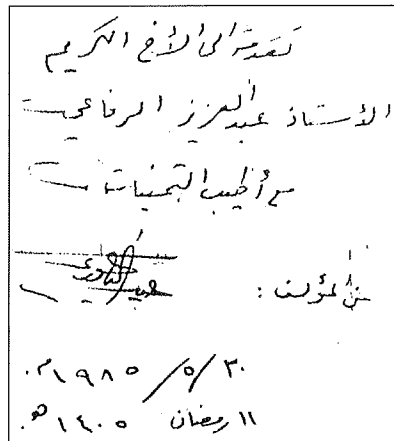 تقدمة الى الأخ الكريم
الأستاذ عبد العزيز الرفاعي
مع أطيب التمنيات
من المؤلف :
٣٠ / ٥ / ١٩٨٥ م.
١١ رمضان ١٤٠٥ هـ.